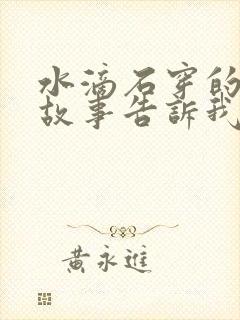 水滴石穿的
故事告訴我
黃永進